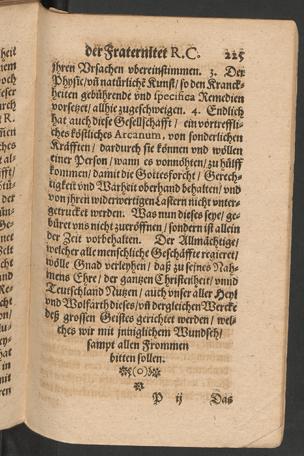 der Fraternitet R. C. 225
jhren Vrsachen vbereinstimmen. 3. Der
Physic/ vñ natürlichẽ Kunst/ so den Kranck-
heiten gebührende vnd specifica Remedien
vorsetzt/ allhie zugeschweigen. 4. Endlich
hat auch diese Gesellschafft/ ein vortreffli-
ches köstliches Arcanum, von sonderlichen
Kräfften/ dardurch sie können vnd wöllen
einer Person/ wann es vonnöhten/ zu hülff
kommen/ damit die Gottesforcht/ Gerech-
tigkeit vnd Warheit oberhand behalten/ vnd
von jhren widerwertigen Lastern nicht vnter-
getrucket werden. Was nun dieses seye/ ge-
büret vns nicht zueröffnen/ sondern ist allein
der Zeit vorbehalten. Der Allmächtige/
welcher alle menschliche Geschäffte regieret/
wölle Gnad verleyhen/ daß zu seines Nah-
mens Ehre/ der gantzen Christenheit/ vnnd
Teutschland Nutzen/ auch vnser aller Heyl
vnd Wolfarth dieses/ vñ dergleichen Wercke
deß grossen Geistes gerichtet werden/ wel-
ches wir mit jnniglichem Wundsch/
sampt allen Frommen
bitten sollen.
(o)
P ij Das